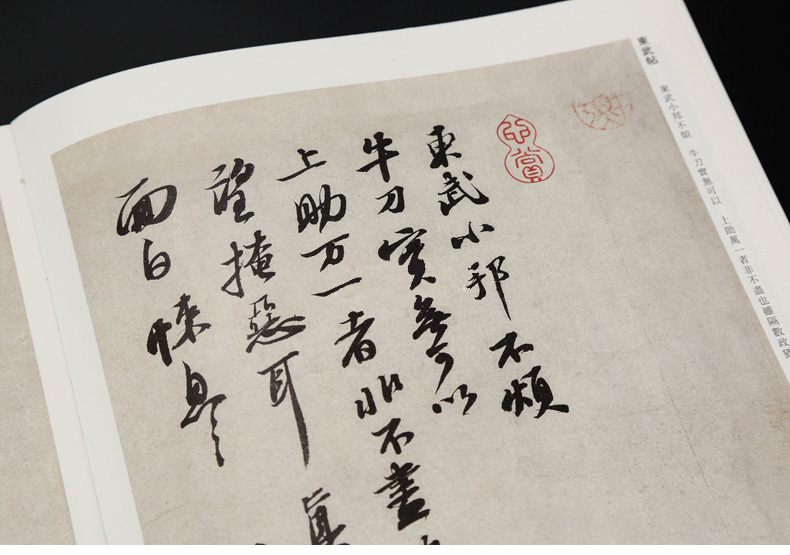 東武帖
東武小邦不煩 牛刀實無可以 上助萬一者非不盡也雖隔數政猶
心賞
東武小邦不煩
牛刀實無可以
上助万一者非不盡
望掩惡耳 真
面白悚息〻